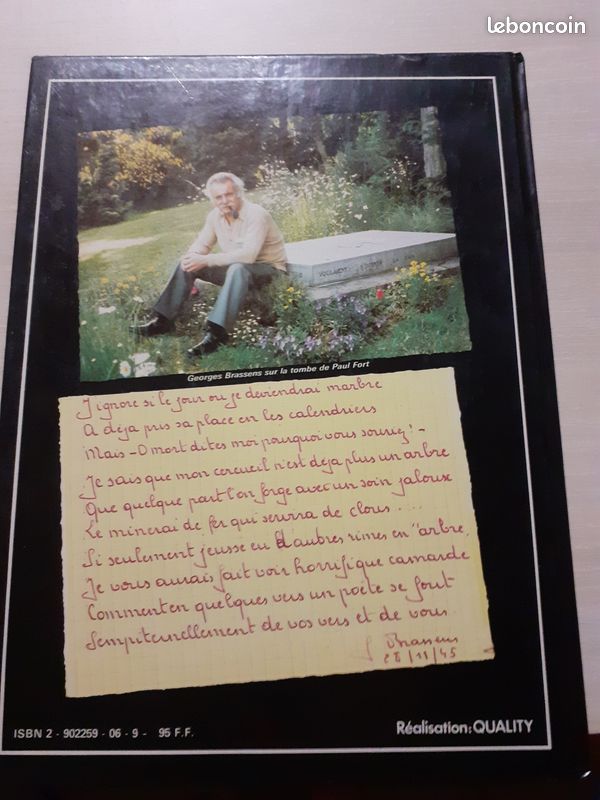 leboncoin
Georges Brassens sur la tombe de Paul Fort
J'ignore si le jour ou je deviendrai marbre
A déja pris sa place en les calendriers
Mais - O mort dites moi pourquoi vous souriez! -
Je sais que mon cercueil n'est déja plus un arbre
Que quelque part l'on forge avec un soin jaloux
Le minerai de fer qui servira de clous....
Si seulement j'eusse eu d'autres rimes en "arbre"
Je vous aurais fait voir horrifique camarde
Comment en quelques vers un poète se fout
Sempiternellement de vos vers et de vous
G Brassens
28/11/45
ISBN 2 - 902259 - 06 - 9 - 95 F.F.
Réalisation: QUALITY